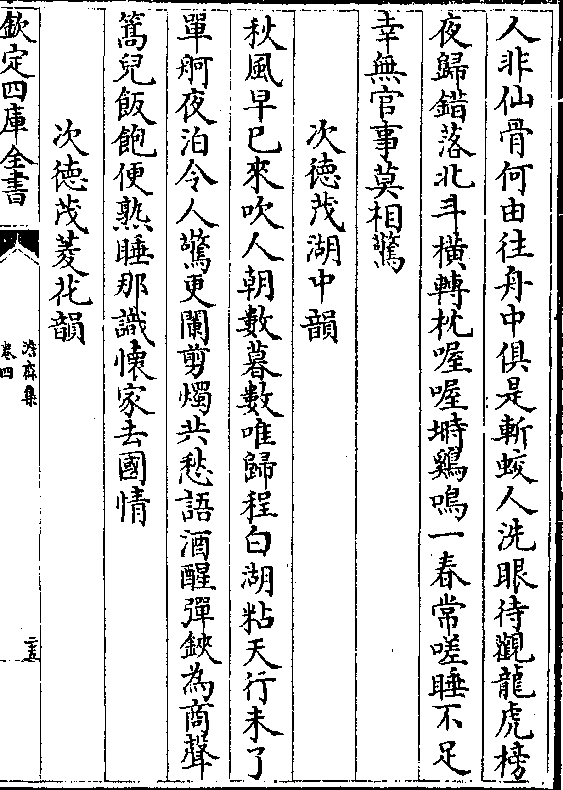 人非仙骨何由往舟中俱是斬蛟人洗眼待觀龍虎榜
夜歸錯落北斗橫轉枕喔喔塒鷄鳴一春常嗟睡不足
幸無官事莫相驚
次徳茂湖中韻
秋風早已來吹人朝數暮數唯歸程白湖粘天行未了
單舸夜泊令人驚更闌剪燭共愁語酒醒彈鋏為商聲
篙兒飯飽便熟睡那識懷家去國情
次徳茂菱花韻
欽定四庫全書
澹齋集
卷四